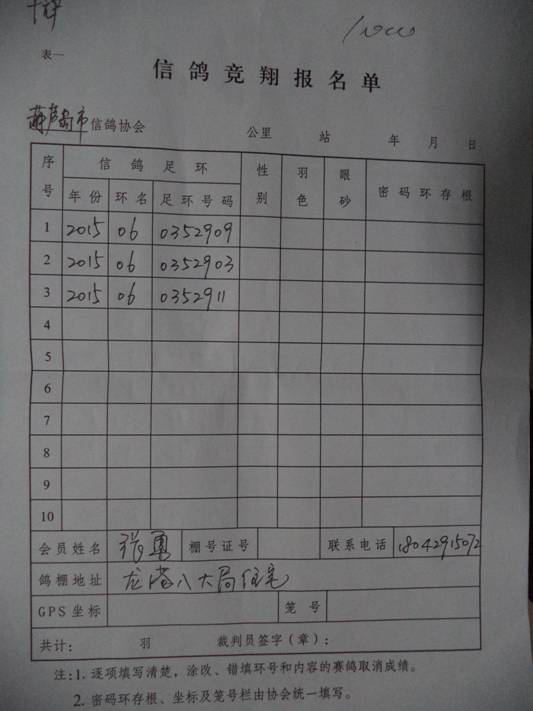 1000
表一
信鸽竞翔报名单
葫芦岛市信鸽协会 公里 站 年 月 日
序号 信鸽足环 性别 羽色 眼砂 密码环存根
年份 环名 足环号码
1 2015 06 0352909
2 2015 06 0352903
3 2015 06 0352911
4
5
6
7
8
9
10
会员姓名 张勇 棚号证号 联系电话 18042915072
鸽棚地址 龙港八大局住宅
GPS坐标 笼号
共计: 羽 裁判员签字(章):
注:1. 逐项填写清楚,涂改、错填环号和内容的赛鸽取消成绩。
2. 密码环存根、坐标及笼号栏由协会统一填写。